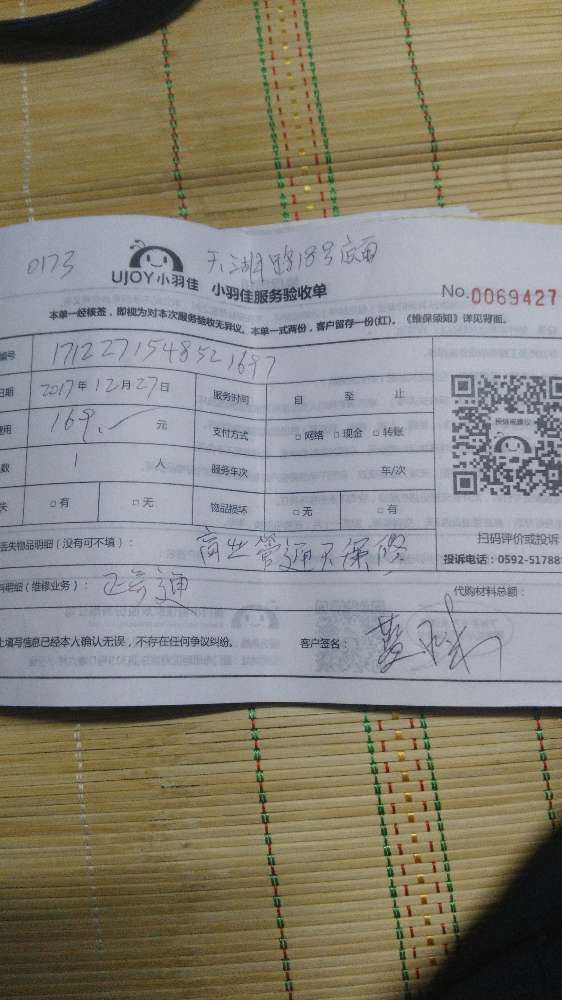 0173 天湖路18号店面
UJOY小羽佳 小羽佳服务验收单 No.0069427
本单一经核签，即视为对本次服务验收无异议。本单一式两份，客户留存一份(红)。《维保须知》详见背面。
编号 1712271548521697
日期 2017年12月27日 服务时间 自 至 止
费用 169. 元 支付方式 □网络 □现金 □转账
人数 1 人 服务车次 车/次
□有 □无 物品损坏 □无 □有
投诉或建议
丢失物品明细（没有可不填）： 商业管通不保修
扫码评价或投诉
投诉电话：0592-51788
料明细（维修业务）： 已弄通 代购材料总额：
上填写信息已经本人确认无误，不存在任何争议纠纷。 客户签名：